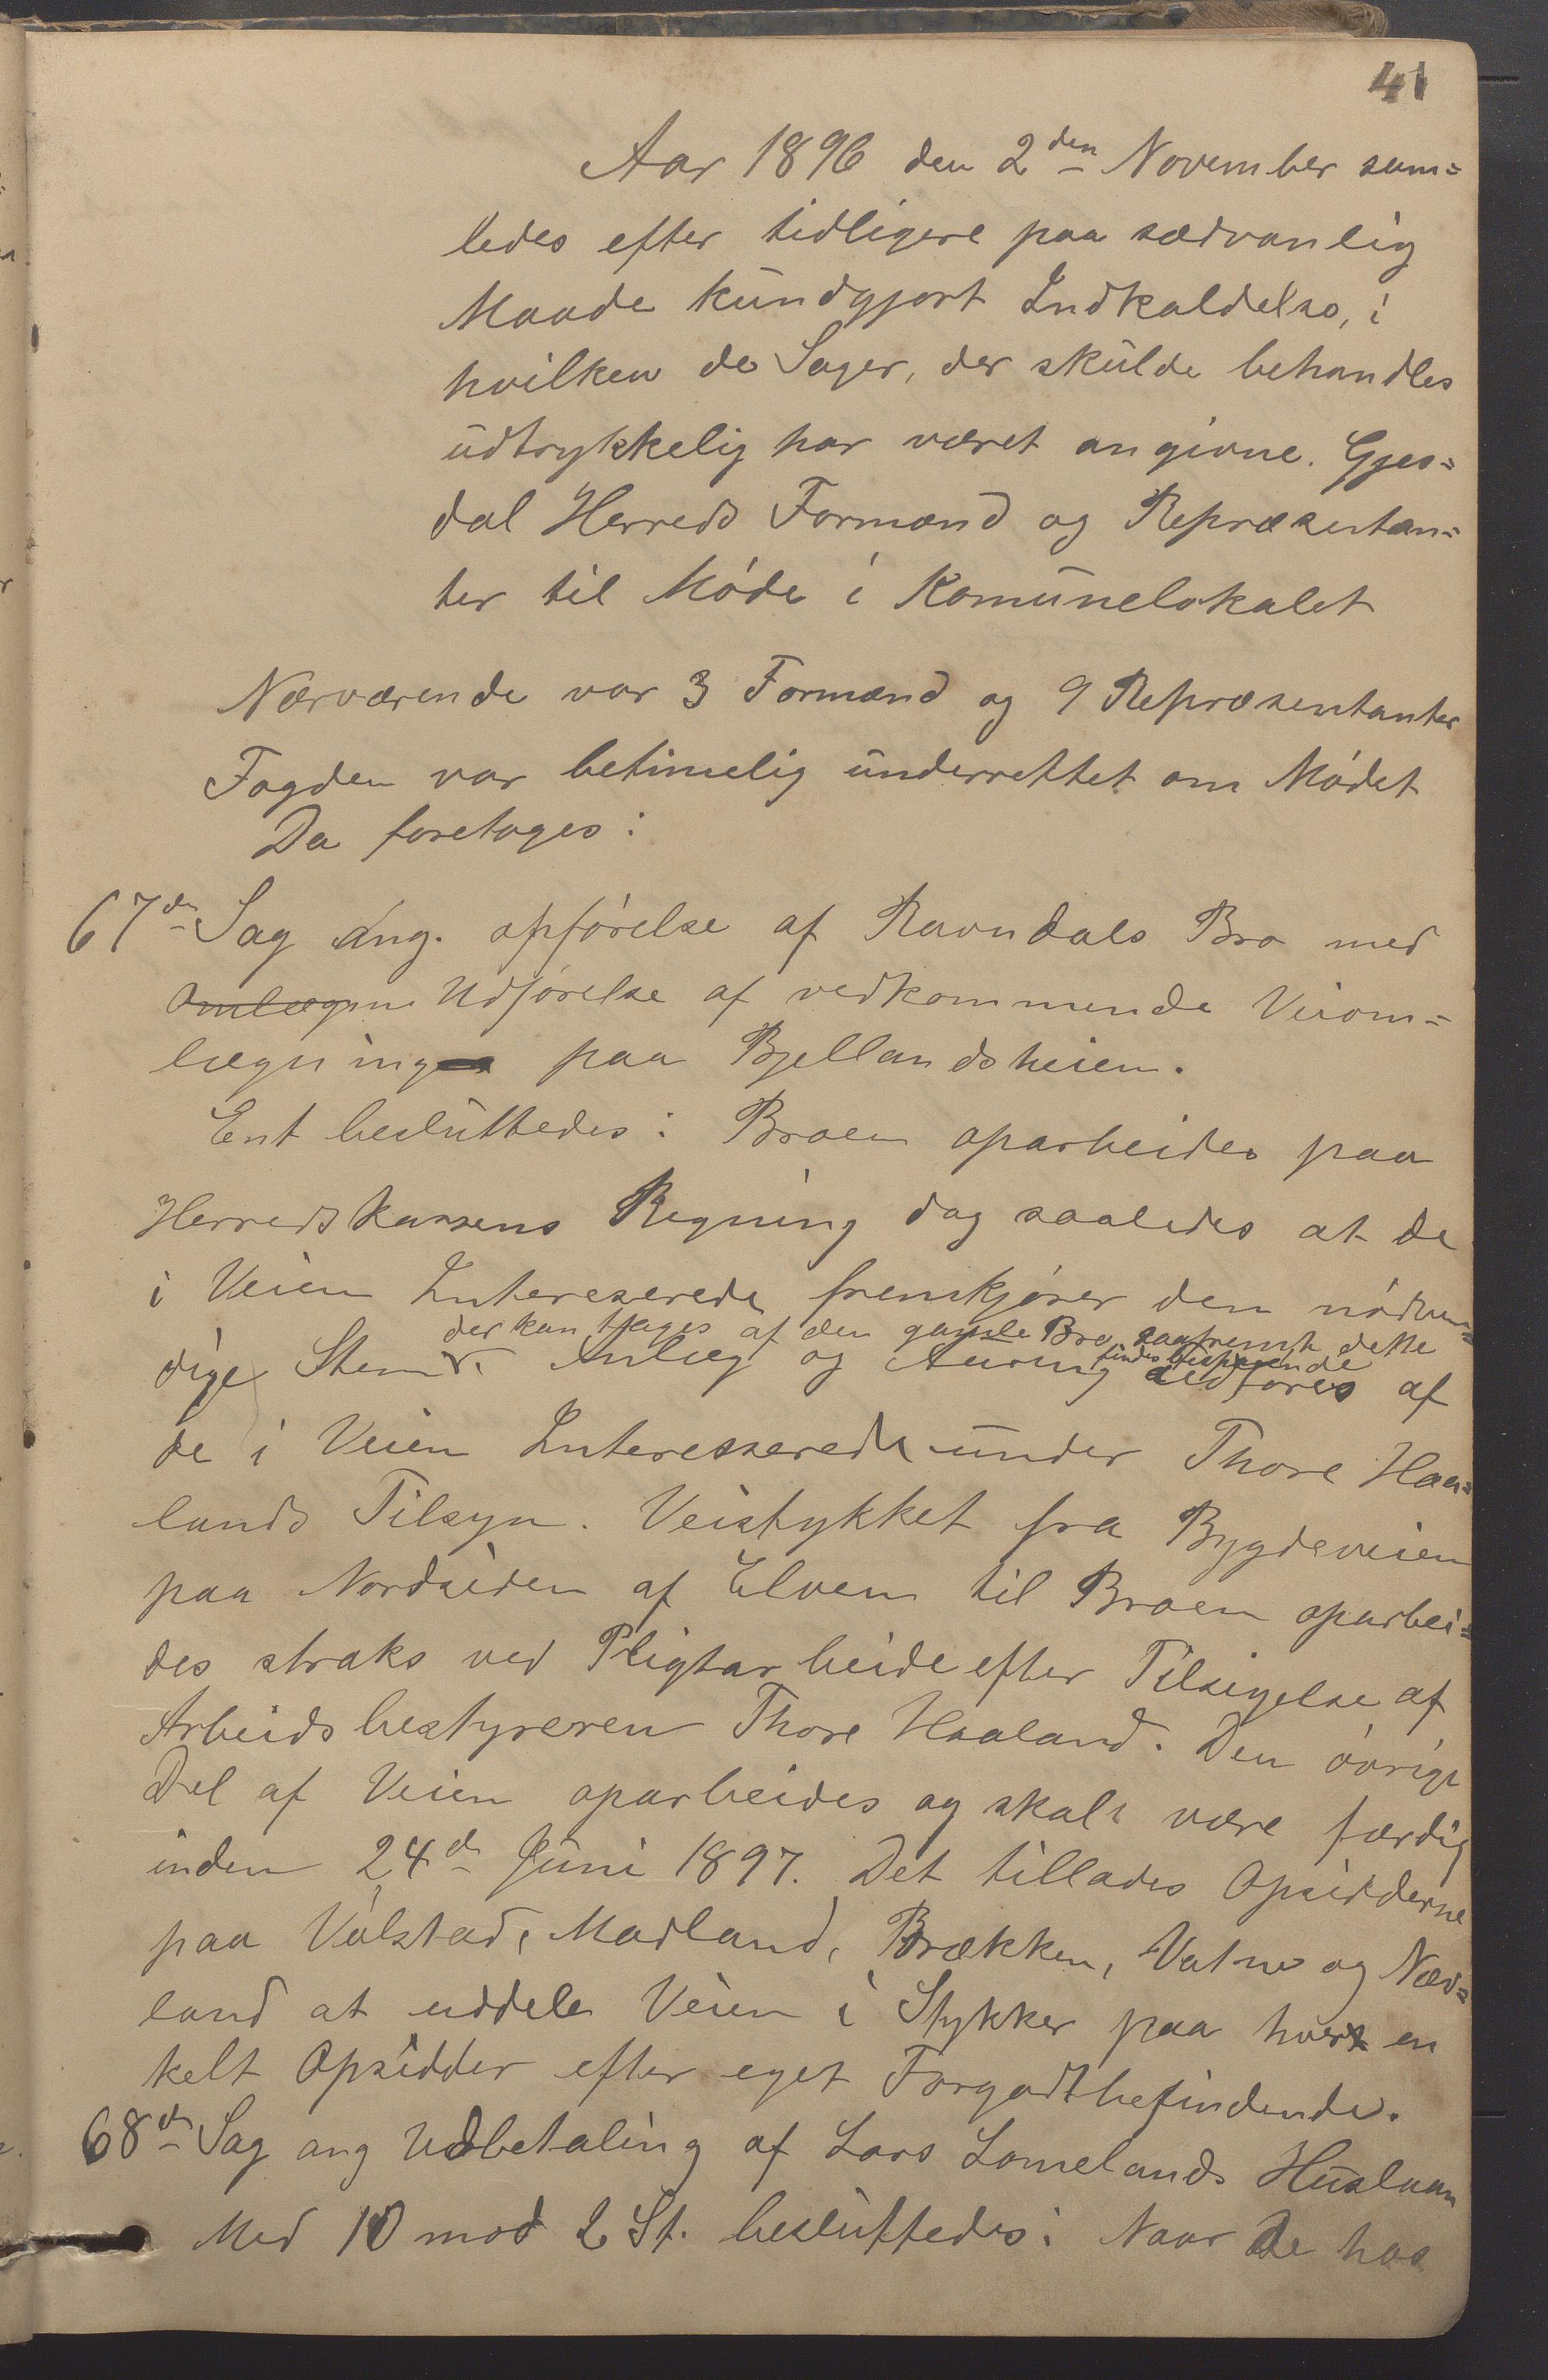 41
Aar 1896 den 2den November sam=
ledes efter tidligere paa sædvanlig
Maade kundgjort Indkaldelse, i
hvilken de Sager, der skulde behandles
udtrykkelig har været angivne. Gjes=
dal Herreds Formænd og Repræsentan=
ter til Møde i Komunelokalet
Nærværende var 3 Formænd og 9 Repræsentanter
Fogden var betimelig underrettet om Mødet
Da foretoges:
67de Sag Ang. opførelse af Ravndals Bro med
Omlægn Udførelse af vedkommende Veiom=
lægning paa Bjellandsheien.
Ent besluttedes: Broen oparbeides paa
Herredskassens Regning dog saaledes at de
i Veien Intereserede fremkjører den nødven=
der kan tages af den gamle Bro saafremt dette
findes besparende
dige Sten v. Anlæg og Auring udføres af
de i Veien Interesserede under Thore Haa=
lands Tilsyn. Veistykket fra Bygdeveien
paa Nordsiden af Elven til Broen oparbei=
des straks ved Pligtarbeide efter Tilsigelse af
Arbeidsbestyreren Thore Haaland. Den øvrige
Del af Veien oparbeides og skal være færdig
inden 24de Juni 1897. Det tillades Opsidderne
paa Ualstad, Madland, Brækken, Vatne og Næv=
land at uddele Veien i Stykker paa hver en
kelt Opsidder efter eget Forgodtbefindende.
68de Sag ang Udbetaling af Lars Lomelands Huslaan
Med 10 mod 2 St. besluttedes: Naar De hos